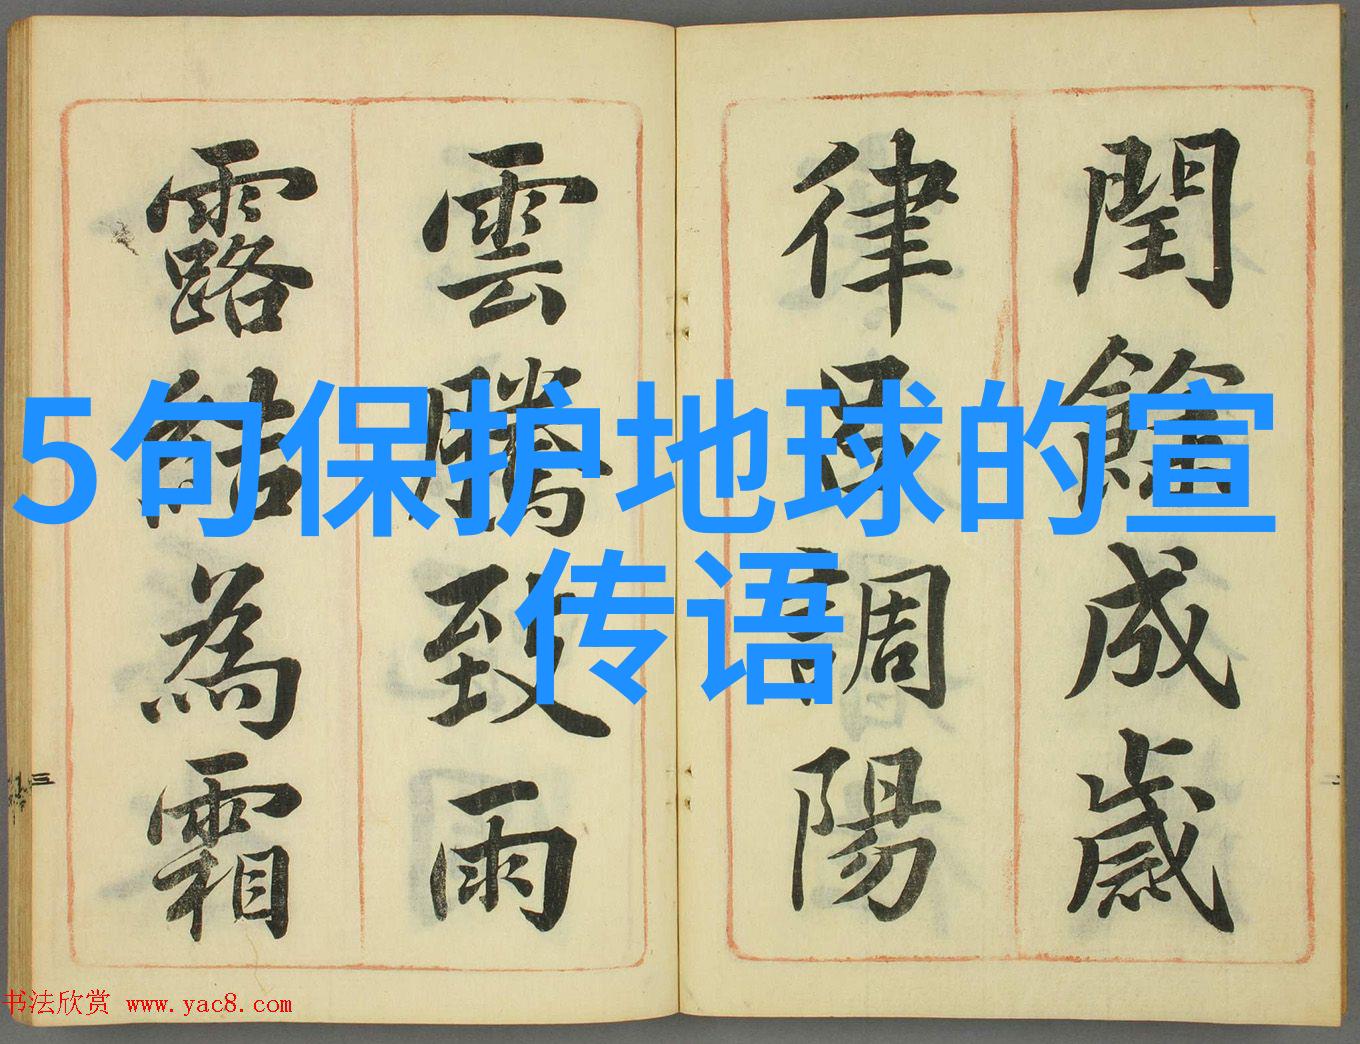 5句保护地球的宣
传语
閏餘成歲
律呂調陽
雲騰致雨
露結為霜
三
书法欣赏 www.yac8.com